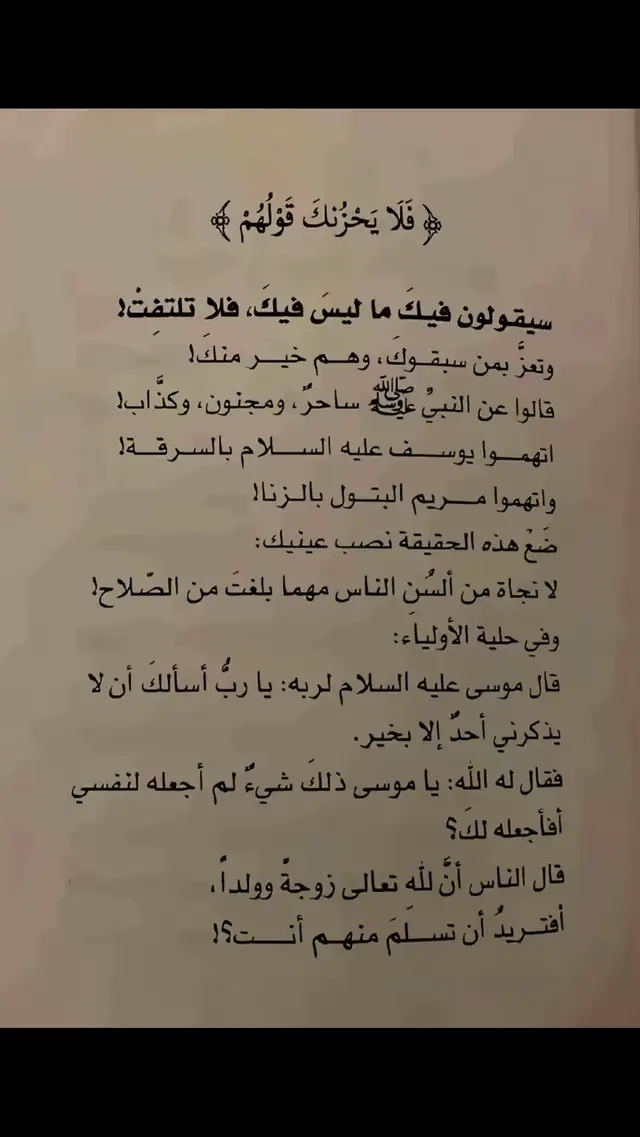 ﴿ فَلَا يَحْزُنكَ قَوْلُهُمْ ﴾
سيقولون فيكَ ما ليسَ فيكَ، فلا تلتفِتْ!
وتعزَّ بمن سبقوكَ، وهم خير منكَ!
قالوا عن النبيِّ ﷺ ساحرٌ، ومجنون، وكذَّاب!
اتهموا يوسف عليه السلام بالسرقة!
واتهموا مريم البتول بالزنا!
ضَعْ هذه الحقيقة نصب عينيك:
لا نجاة من ألسُن الناس مهما بلغتَ من الصّلاح!
وفي حلية الأولياء:
قال موسى عليه السلام لربه: يا ربُّ أسألكَ أن لا
يذكرني أحدٌ إلا بخير.
فقال له الله: يا موسى ذلكَ شيءٌ لم أجعله لنفسي
أفأجعله لكَ؟
قال الناس أنَّ لله تعالى زوجةً وولداً،
أفتريدُ أن تسلَمَ منهم أنت؟!